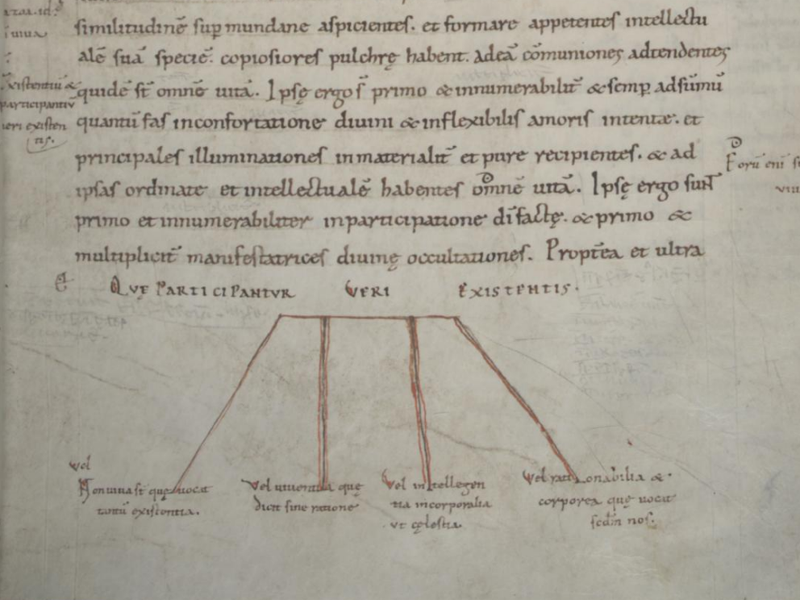 similitudinē sup mundane aspicientes. et formare appetentes intellectu
alē suā speciē. copiosiores pulchrę habent. ad eā cōmuniones adtendentes
quidē s̄t omnē uitā. Ipsę ergo s̄ primo & innumerabilit̄ & semp adsūmū
quantū fas inconfortatione diuini & inflexibilis amoris intentæ. et
principales illuminationes inmaterialit̄ et pure recipientes. & ad
ipsas ordinate et intellectualē habentes omnē uitā. Ipsę ergo sunt
primo et innumerabiliter inparticipatione di factę. & primo &
multiplicit̄ manifestatrices diuinę occultationes. Propt̄ea et ultra
Existentiū &
participantiū
ueri existen
tis.
QUE PARTICIPANTUR UERI EXISTENTIS.
uel
Non uiua s̄t quę uocat
tantū existentia.
Vel uiuentia que
dicit sine ratione
Vel intellegen
tia incorporalia
ut cęlestia.
Vel rationabilia &
corporea quę uocat
scdm nos.